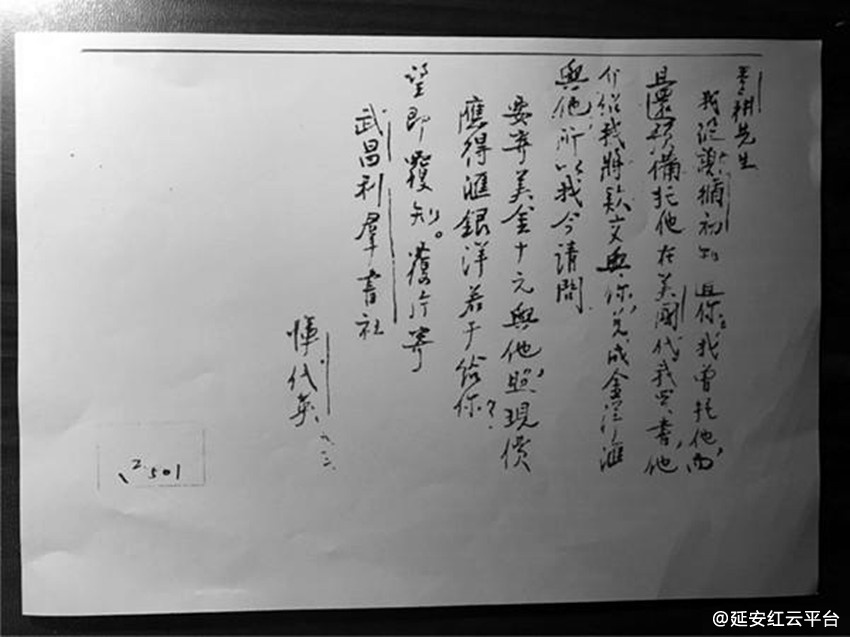 季耕先生
我從謝循初知且你，我曾托他，而
且還預備托他在美國代我買書，他
介紹我將款交與你，兌成金洋，匯
與他，所以我今請問
要寄美金十元與他，照現價
應得匯銀洋若干給你？
望即覆知。覆片寄
武昌利羣書社
惲代英 六，三，
2.501
@延安红云平台